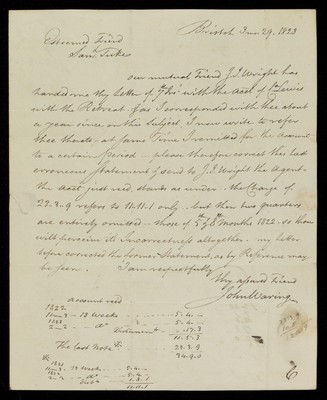 Bristol 3mo. 29. 1823
Esteemed Friend
Saml. Tuke
our mutual Friend J. S. Wright has
handed me thy Letter of 7th Inst. with the acct. of Cn. Lewis
with the Retreat - & as I corresponded with thee about
a year since on this Subject, I now write to refer
thee thereto - at same Time I remitted for the Amount
to a certain period - please therefore correct the last
erroneous Statement & send to J. S. Wright the Agent -
the acct. just recd. stands as under - the Charge of
22.3.9 refers to 11.11.1 only - but then two quarters
are entirely omitted - those of 5th & 8th months 1822 - so thou
wilt perceive its Incorrectness altogether - my letter
before corrected the former Statement, as by Reference may
be seen. I am respectfully
Thy assured Friend
John Waring
Account recd
1822
11mo. 3 - 13 Weeks 5.4.-
1823
2mo. 2 - Do. 5.4.-
.17.3
11.5.3
The last Note &c. 22.3.9
34.9.0
1821
11mo. 3 - 13 Weeks 5.4.-
1822
2mo. 2 - Do. 5.4.-
1.3.1
11.11.1